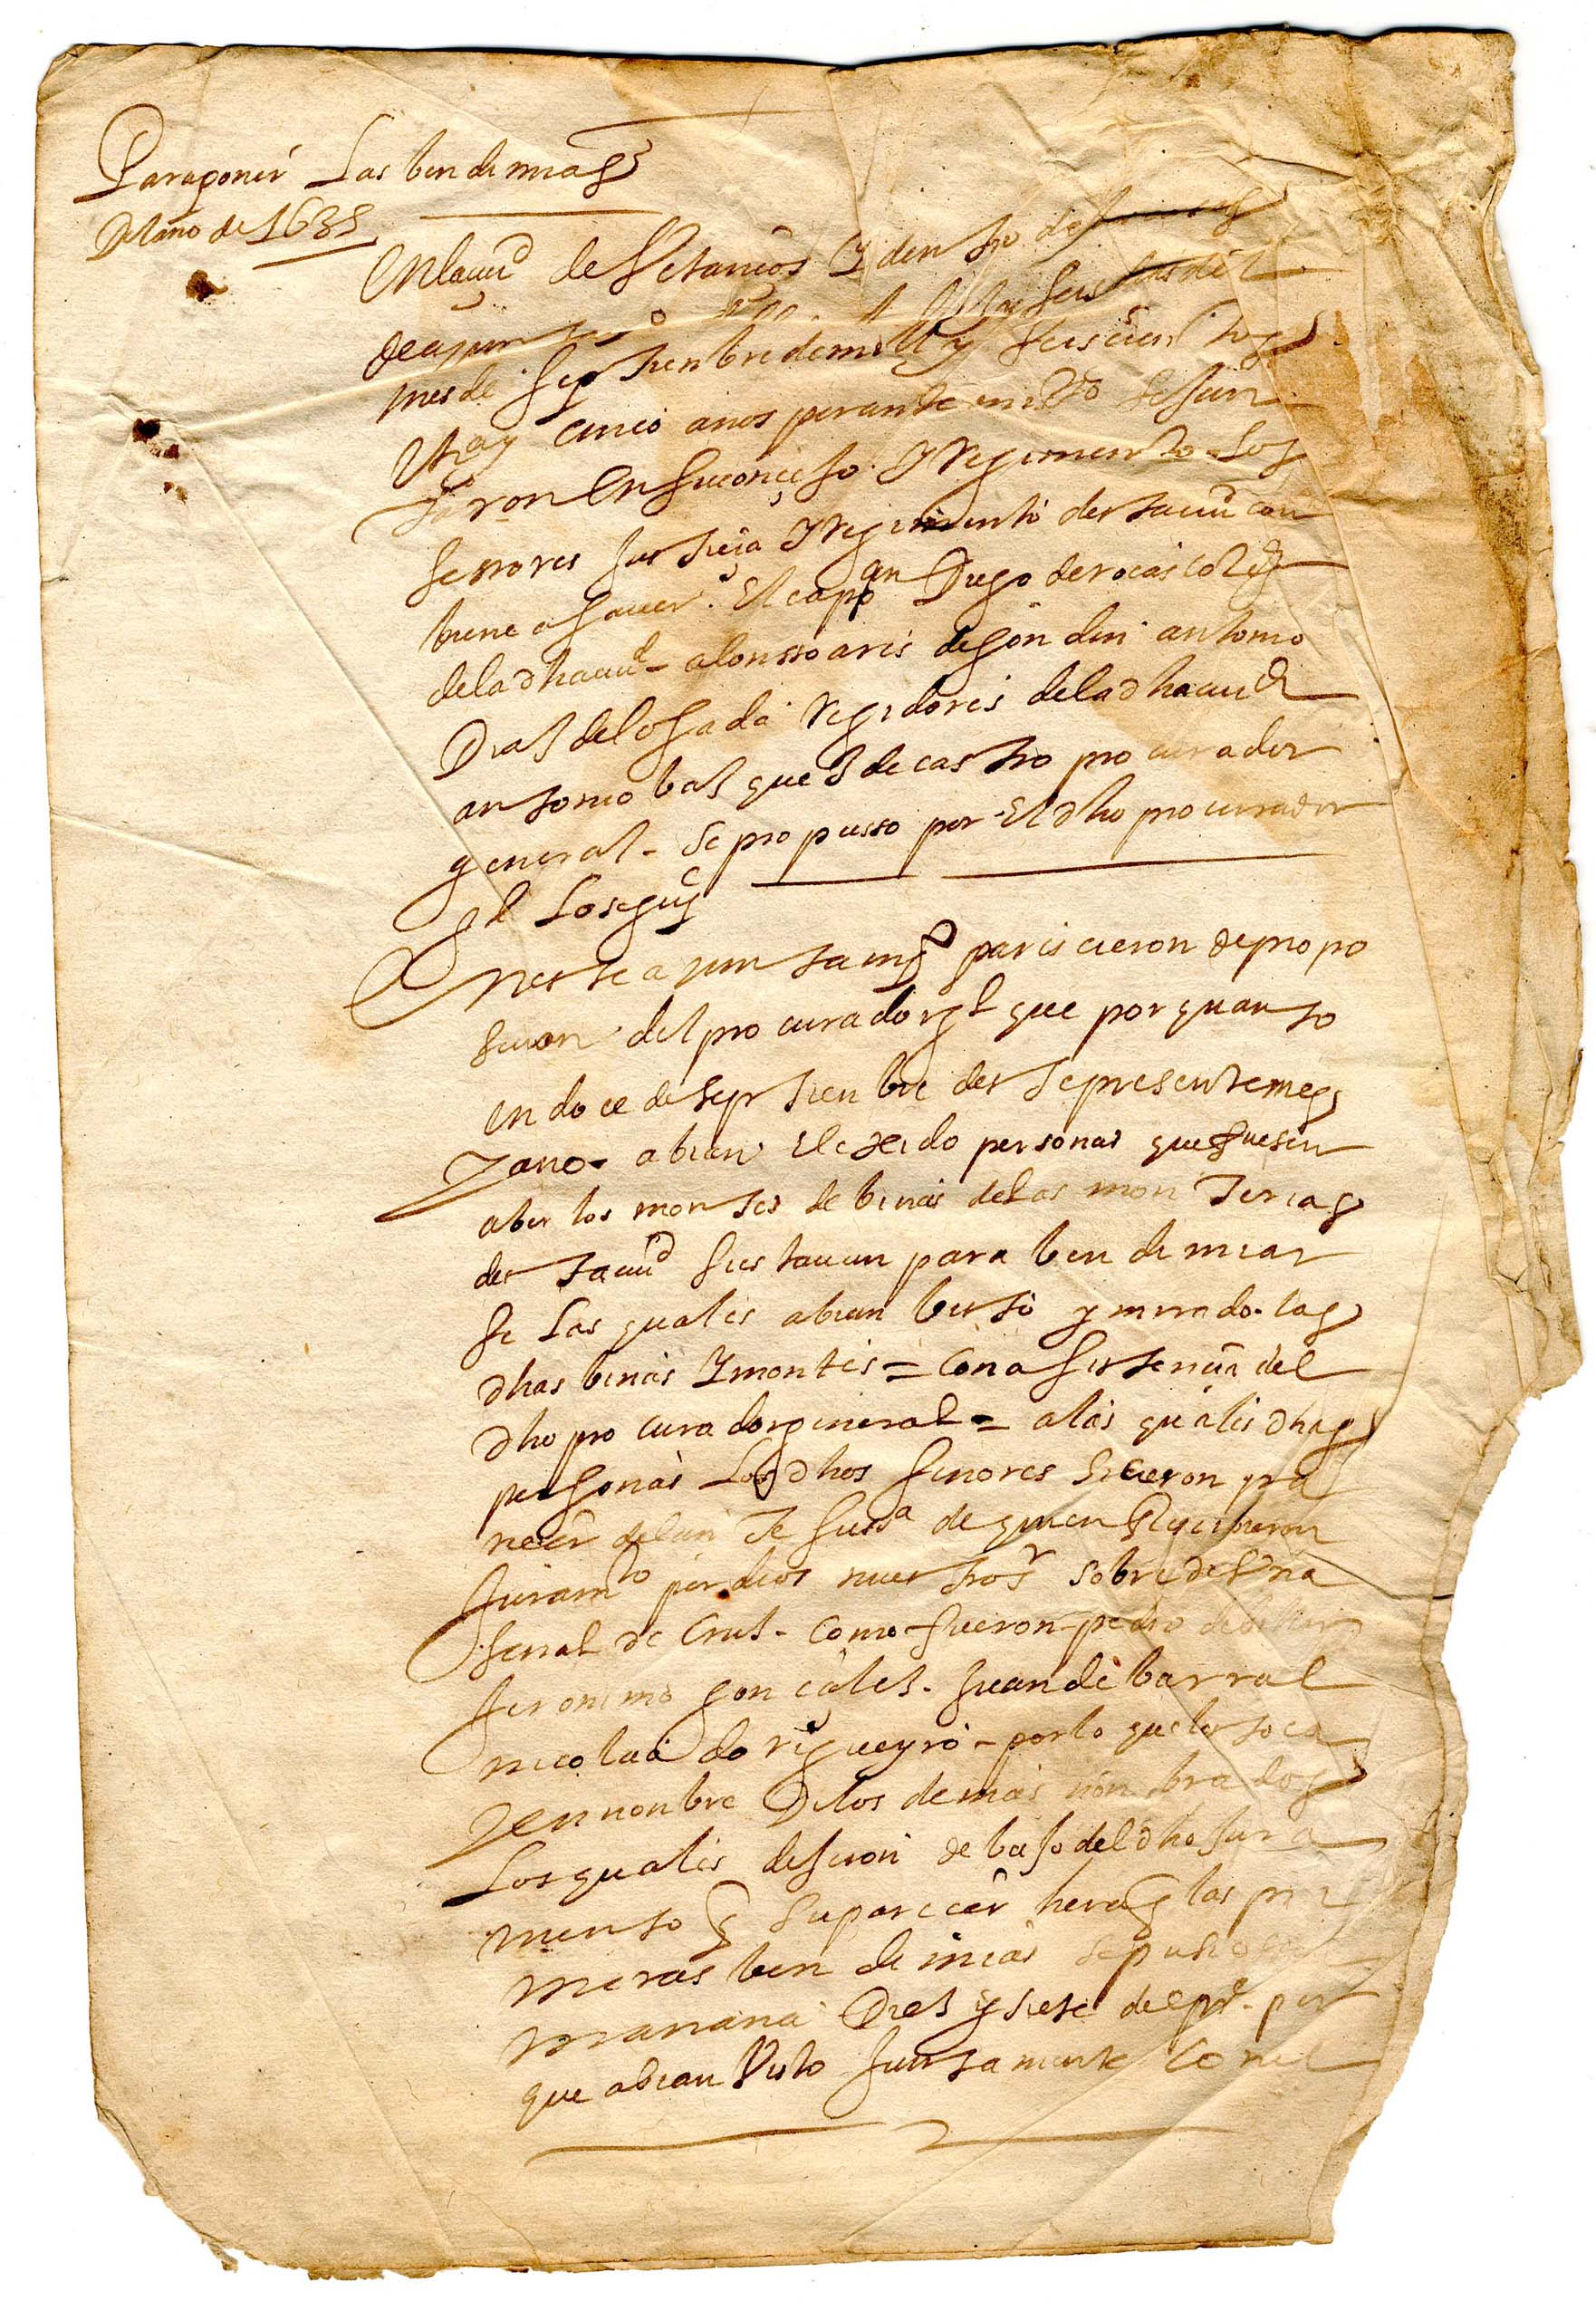 Para poner Las bendimias
Del año de 1635
En la ciud de Vetanços y dentro de
de ayun
mes de septienbre de mill y seiscientos
y çinco anos perante mi sso se jun
taron En su conçejo y Regimiento los
senores justiçia y Regimiento desta ciud con
biene a sauer. El cappan Diego de rocas co
de la dha ciud - alonsso ares de gondin antonio
Dias de losada Regidores de la dha ciud
antonio basques de castro procurador
general - se propusso por El dho procurador
gl Lo sigue
En este ayuntamto paresçieron de propo
siçion del procurador gl que por quanto
en doce de septienbre deste presente mes
y ano - abian Elexido personas que fuesen
a ber los montes de binas de las monterias
desta ciud si estauan para bendimiar
se Las quales abian bisto y mirado las
dhas binas y montes = Con asistençia del
dho procurador general = a las quales dhas
personas Los dhos senores hicieron pra
necer delante su ssa de quien Reciuieron
juramto por dios nuestro sr sobre de Una
senal de Crus - Como fueron pedro de
jeronimo gonçales - juan de barral
nicolas do rigueyro - por lo que les toca
y en nonbre De los demas nonbrados
Los quales dijeron debajo del dho jura
mento q su parecer hera q las pri
meras bendimias se pusiesen
manana Dies y siete del pre - por
que abian Visto juntamente Con el